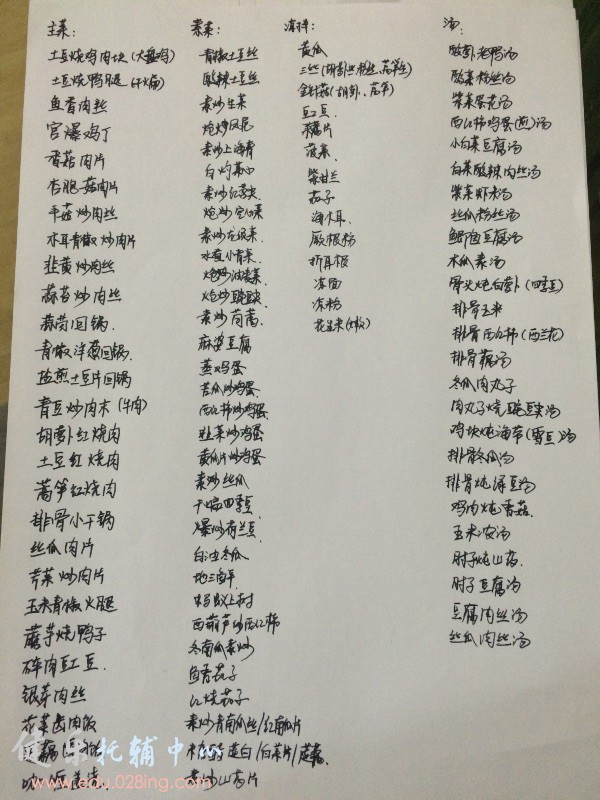 主菜:
土豆烧鸡肉块(大盘鸡)
土豆烧鸭腿(干煸)
鱼香肉丝
宫爆鸡丁
香菇肉片
杏鲍菇肉片
平菇炒肉丝
木耳青椒炒肉片
韭黄炒肉丝
蒜苔炒肉丝
蒜苗回锅
青椒洋葱回锅
盐煎土豆片回锅
青豆炒肉末(牛肉)
胡萝卜红烧肉
土豆红烧肉
莴笋红烧肉
排骨小干锅
丝瓜肉片
芹菜炒肉片
玉米青椒火腿
蘑芋烧鸭子
碎肉豇豆
银芽肉丝
素菜:
青椒土豆丝
酸辣土豆丝
素炒生菜
炝炒凤尾
素炒上海青
白灼菜心
炝炒空心菜
素炒龙须菜
水煮小青菜
炝炒油麦菜
炝炒豌豆尖
素炒茼蒿
麻婆豆腐
蒸鸡蛋
苦瓜炒鸡蛋
西红柿炒鸡蛋
韭菜炒鸡蛋
黄瓜片炒鸡蛋
素炒丝瓜
干煸四季豆
爆炒荷兰豆
白油冬瓜
地三鲜
蚂蚁上树
西葫芦炒西红柿
冬南瓜素炒
鱼香茄子
红烧茄子
素炒青南瓜丝/红南瓜片
素炒山药片
凉拌:
黄瓜
三丝(胡萝卜丝粉丝、莴笋丝)
金针菇(胡萝卜、莴笋)
豇豆
藕片
菠菜
紫甘兰
茄子
海木耳
蕨根粉
折耳根
凉面
凉粉
花生米
汤:
酸萝卜老鸭汤
酸菜粉丝汤
紫菜蛋花汤
西红柿鸡蛋(煎)汤
小白菜豆腐汤
白菜酸辣肉丝汤
紫菜虾米汤
丝瓜粉丝汤
鲫鱼豆腐汤
木瓜素汤
骨头炖白萝卜(四季豆)
排骨玉米
排骨西红柿(西兰花)
排骨藕汤
冬瓜肉丸子
肉丸子烧豌豆尖汤
鸡块炖海带(雪豆)汤
排骨冬瓜汤
排骨炖绿豆汤
鸡肉炖香菇
玉米浓汤
肘子炖山药
肘子豆腐汤
豆腐肉丝汤
丝瓜肉丝汤
健乐托辅中心
www.edu.028ing.com